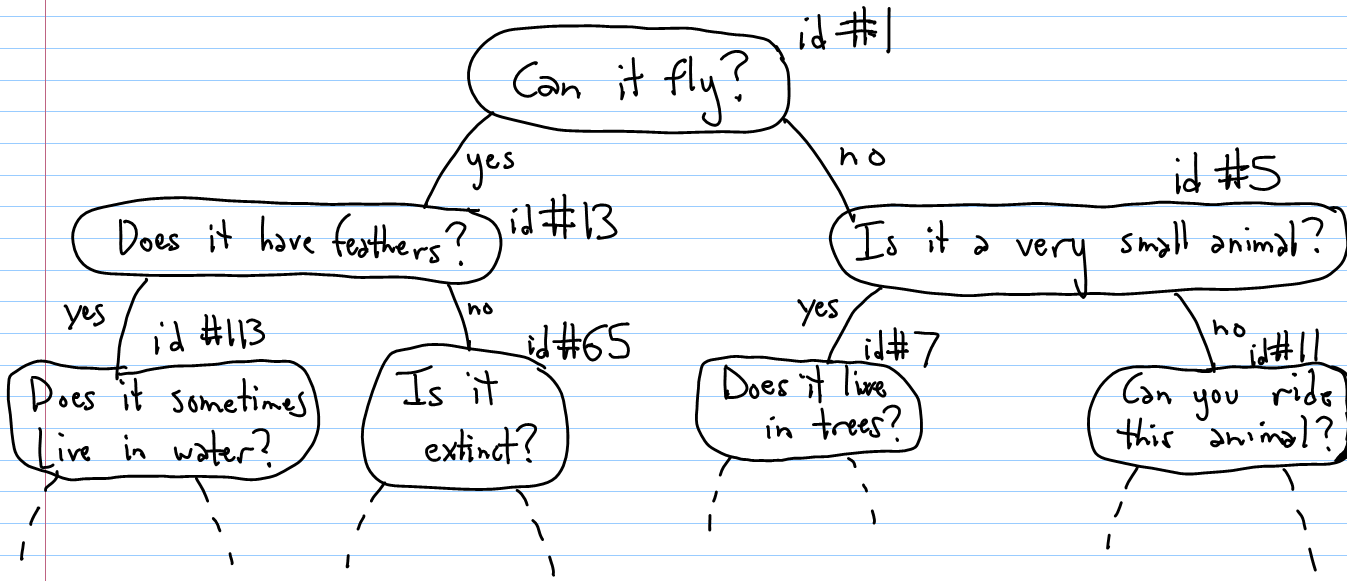 id #1
Can it fly?
yes
no
id #5
Does it have feathers?
id #13
Is it a very small animal?
yes
no
yes
no
id #113
id #65
id #7
id #11
Does it sometimes
Live in water?
Is it
extinct?
Does it live
in trees?
Can you ride
this animal?